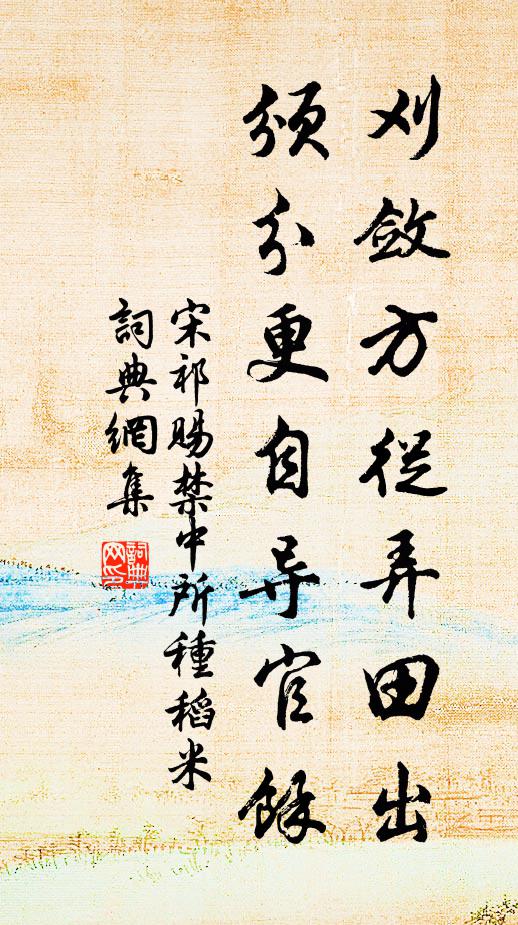 刈斂方從弄田出
頒分更自导官餘
宋祁賜禁中所種稻米
詞典網集
詞典
网印